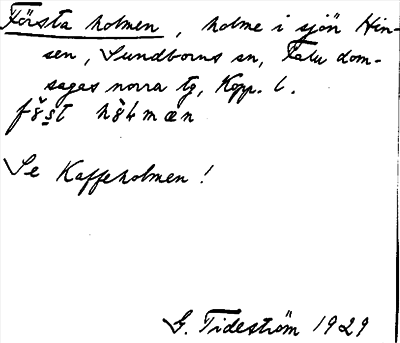 Första holmen, holme i sjön Hin-
sen, Sundborns sn, Falu dom-
sagas norra tg, Kopp. l.
Se Kaffeholmen!
G. Tideström 1929